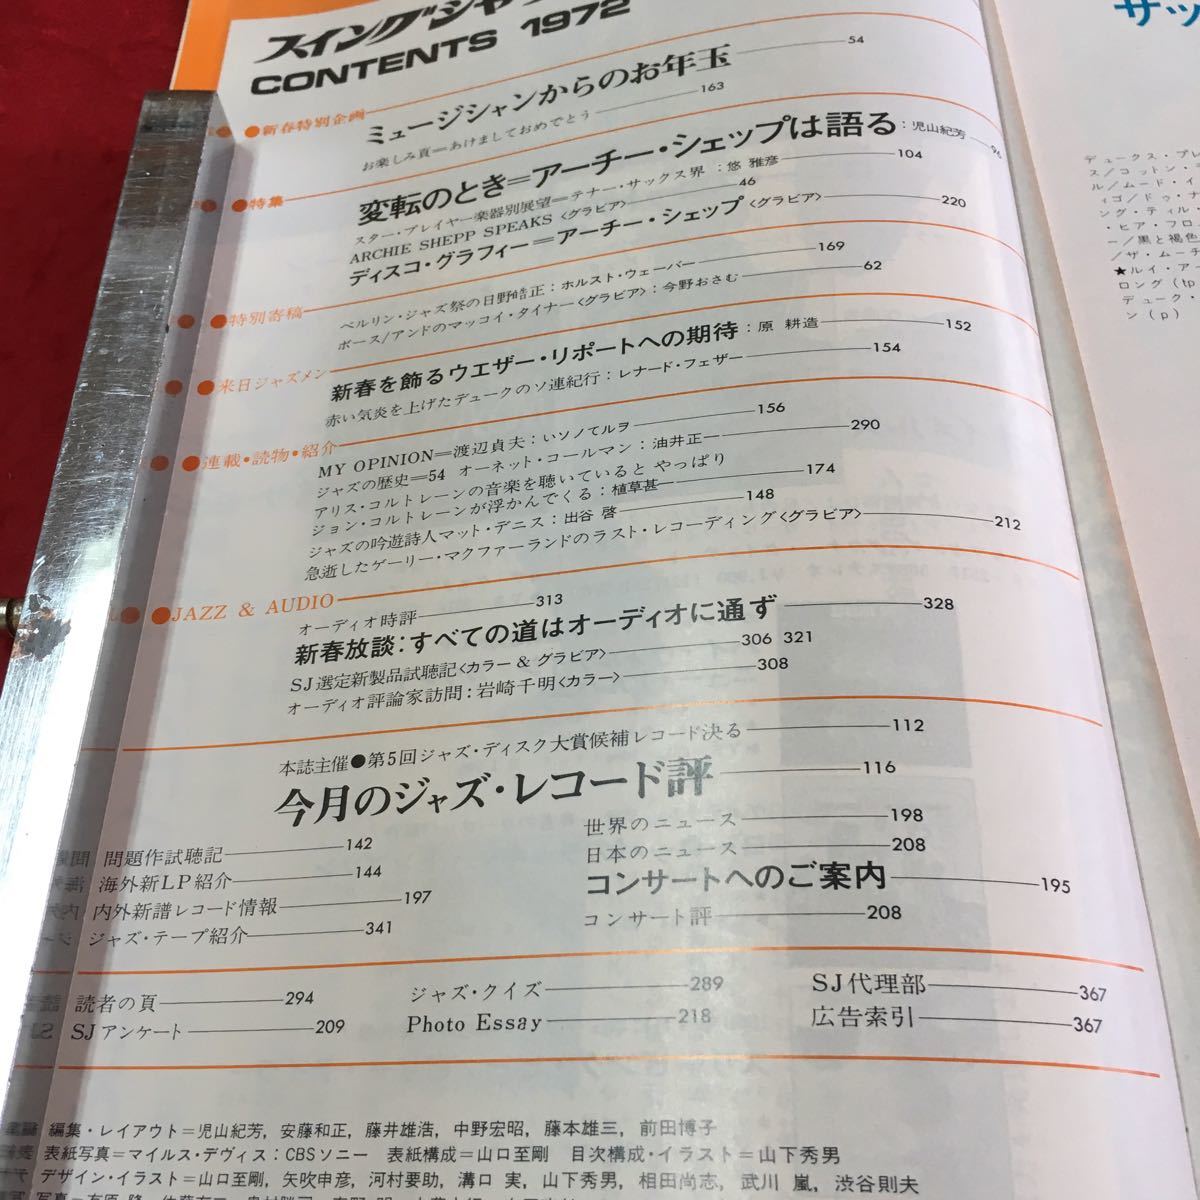 スイングジャ
CONTENTS 1972
●新春特別企画
ミュージシャンからのお年玉 54
お楽しみ頁=あけましておめでとう 163
●特集
変転のとき=アーチー・シェップは語る:児山紀芳 96
スター・プレイヤー楽器別展望=テナー・サックス界:悠 雅彦 104
ARCHIE SHEPP SPEAKS〈グラビア〉 46
ディスコ・グラフィー=アーチー・シェップ〈グラビア〉 220
●特別寄稿
ベルリン・ジャズ祭の日野皓正:ホルスト・ウェーバー 169
ボース/アンドのマッコイ・タイナー〈グラビア〉:今野おさむ 62
●来日ジャズメン
新春を飾るウエザー・リポートへの期待:原 耕造 152
赤い気炎を上げたデュークのソ連紀行:レナード・フェザー 154
●連載・読物・紹介
MY OPINION=渡辺貞夫:いソノてルヲ 156
ジャズの歴史=54 オーネット・コールマン:油井正一 290
アリス・コルトレーンの音楽を聴いていると やっぱり
ジョン・コルトレーンが浮かんでくる:植草甚一 174
ジャズの吟遊詩人マット・デニス:出谷 啓 148
急逝したゲーリー・マクファーランドのラスト・レコーディング〈グラビア〉 212
●JAZZ & AUDIO
オーディオ時評 313
新春放談:すべての道はオーディオに通ず 328
SJ選定新製品試聴記〈カラー&グラビア〉 306 321
オーディオ評論家訪問:岩崎千明〈カラー〉 308
本誌主催●第5回ジャズ・ディスク大賞候補レコード決る 112
今月のジャズ・レコード評 116
問題作試聴記 142
海外新LP紹介 144
内外新譜レコード情報 197
ジャズ・テープ紹介 341
世界のニュース 198
日本のニュース 208
コンサートへのご案内 195
コンサート評 208
読者の頁 294
SJアンケート 209
ジャズ・クイズ 289
Photo Essay 218
SJ代理部 367
広告索引 367
編集・レイアウト=児山紀芳, 安藤和正, 藤井雄浩, 中野宏昭, 藤本雄三, 前田博子
表紙写真=マイルス・デヴィス:CBSソニー 表紙構成=山口至剛 目次構成・イラスト=山下秀男
デザイン・イラスト=山口至剛, 矢吹申彦, 河村要助, 溝口 実, 山下秀男, 相田尚志, 武川 嵐, 渋谷則夫
サッ
デュークス・プレ
ス/コットン・
ル/ムード・イ
ィゴ/ドゥ・ナ
ング・ティル・
・ヒア・フロ
ー/黒と褐色
/ザ・ムーチ
★ルイ・アー
ロング(tp
デューク・
ン(p)